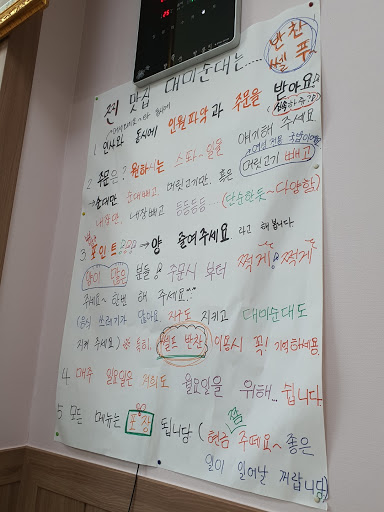 찐 맛집 대미순대는....
반찬
셀푸
1. 인사와 동시에 인원파악과 주문을 받아요!
얘기해 주세요
2. 주문은? 원하시는 스타~일을
머릿고기 빼고
→ 순대만, 순대빼고, 머릿고기만, 혹은
내장만, 내장빼고 등등등등~ (단순한듯~다양함)
3. 포인트??? → 양 줄여주세요. 라고 해봅니다
양이 많은 분들 주문시 부터 적게! 적게
주세요~ 한번 해 주세요!!
(음식 쓰레기가 많아요. 지구도 지키고 대미순대도
지켜 주세요) ※ 특히, 셀프 반찬 이동시 꼭! 기억하세용.
4. 매주 일요일은 저희도 월요일을 위해... 쉽니다
5. 모든 메뉴는 포장 됩니당 (현금 좀 주떼요~ 좋은
일이 일어날 꺼랍니당)